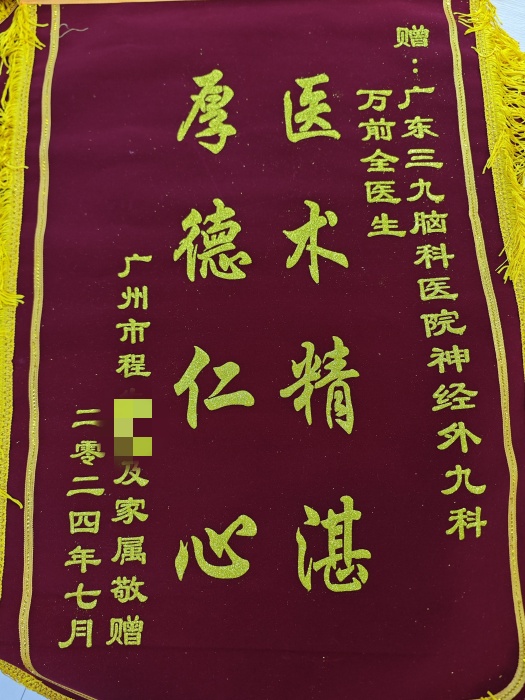 赠：广东三九脑科医院神经外九科
万前全医生
医术精湛
厚德仁心
广州市程及家属敬赠
二零二四年七月